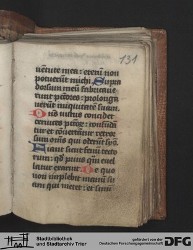 131
uentute mea: etenī non
potuerūt michi. Supra
dorsum meū fabricaue
runt pctōres: prolonga
uerūt iniquitatē suam.
Dn̄s iustus concidet
ceruices pctōr̄: confūdā
tur et conuertātur retror
sum om̄s qui oderūt syō.
Fiant sicut fenū tecto
rum: qd̄ prius qm̄ euel
latur exaruit. De quo
non impleuit manū su
am qui metet: et sinū
Stadtbibliothek
und Stadtarchiv Trier
gefördert von der
Deutschen Forschungsgemeinschaft
DFG